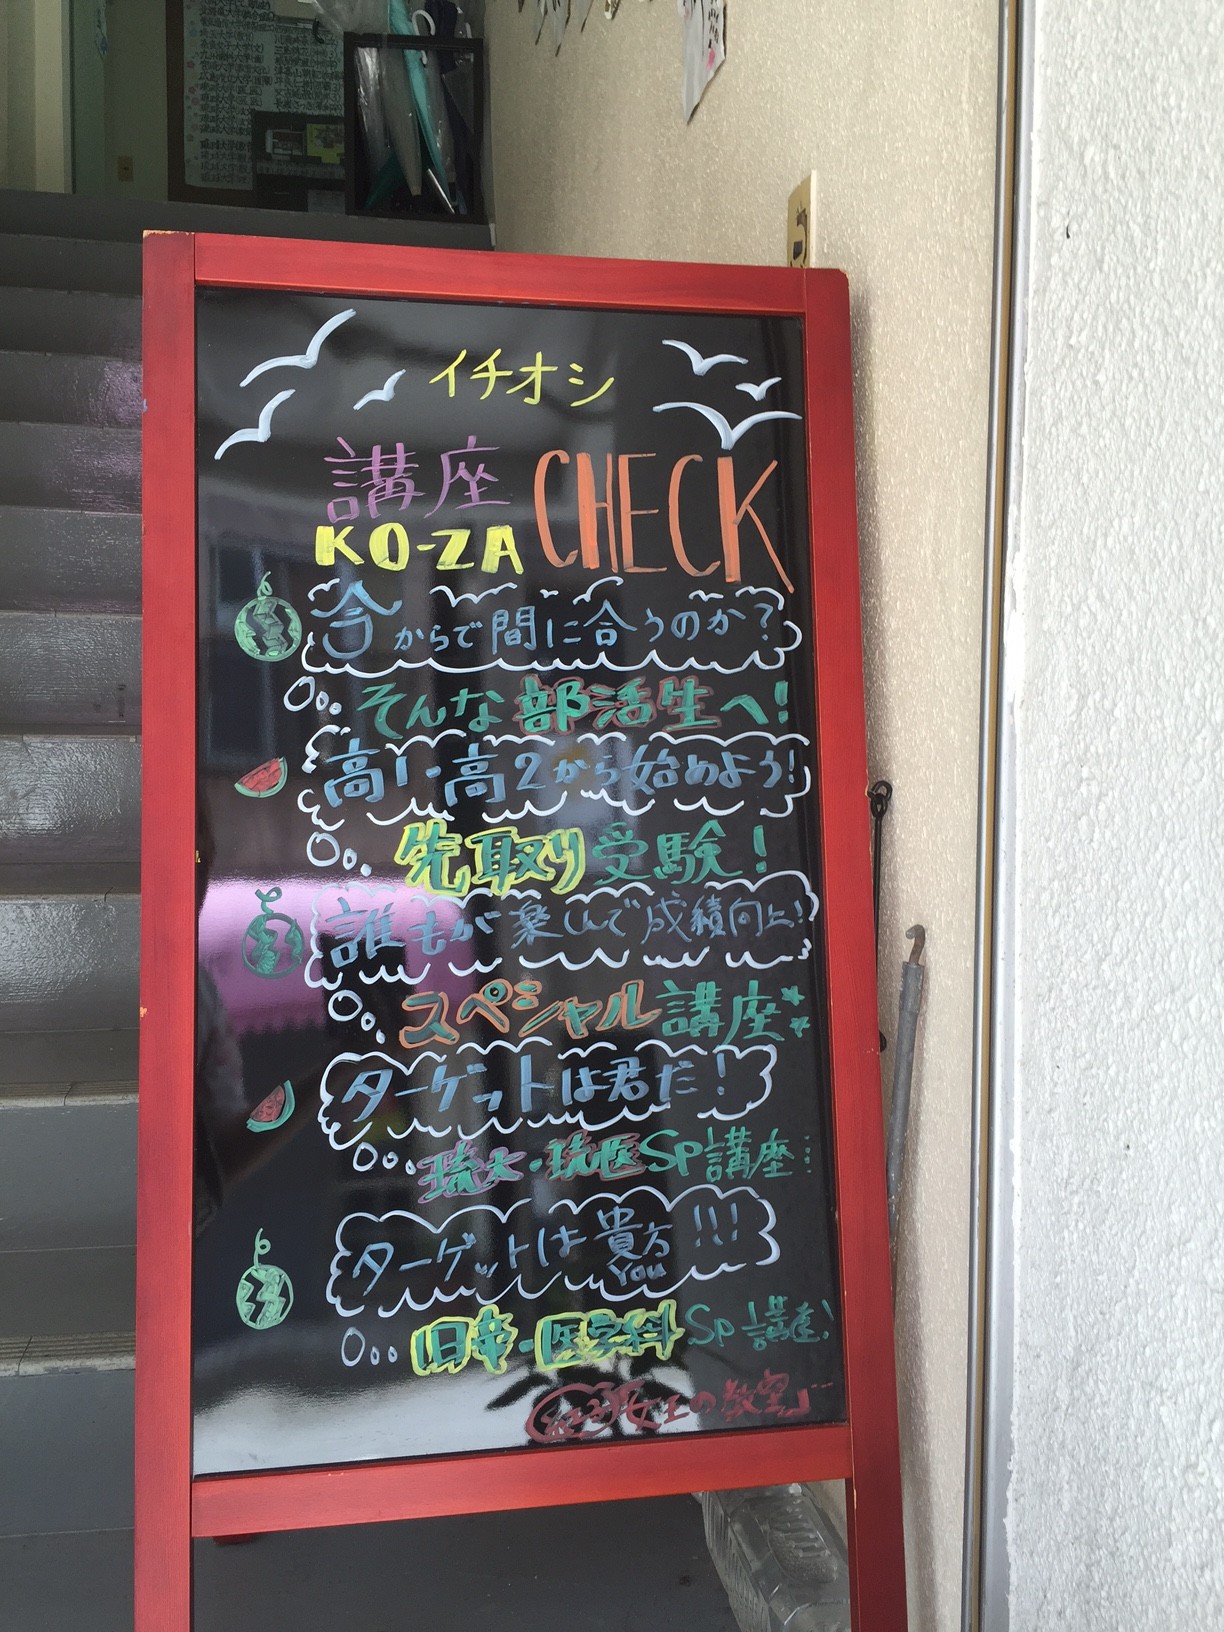 イチオシ
講座 CHECK
KO-ZA
今からで間に合うのか?
そんな部活生へ!
高1・高2から始めよう!
先取り受験!
誰もが楽しんで成績向上!
スペシャル講座
ターゲットは君だ!
琉大・琉医Sp講座
ターゲットは貴方!!!
You
旧帝・医学科Sp講座!
女王の教室」